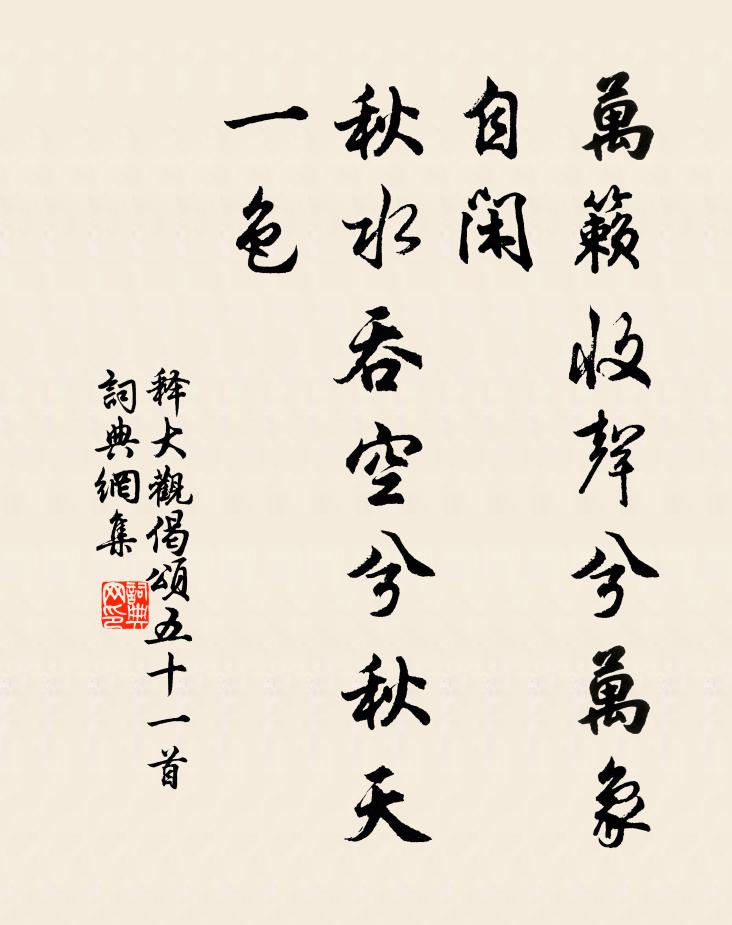 萬籟收聲兮萬象
自閑
秋水吞空兮秋天
一色
释大觀偈頌五十一首
詞典網集
詞典
网印